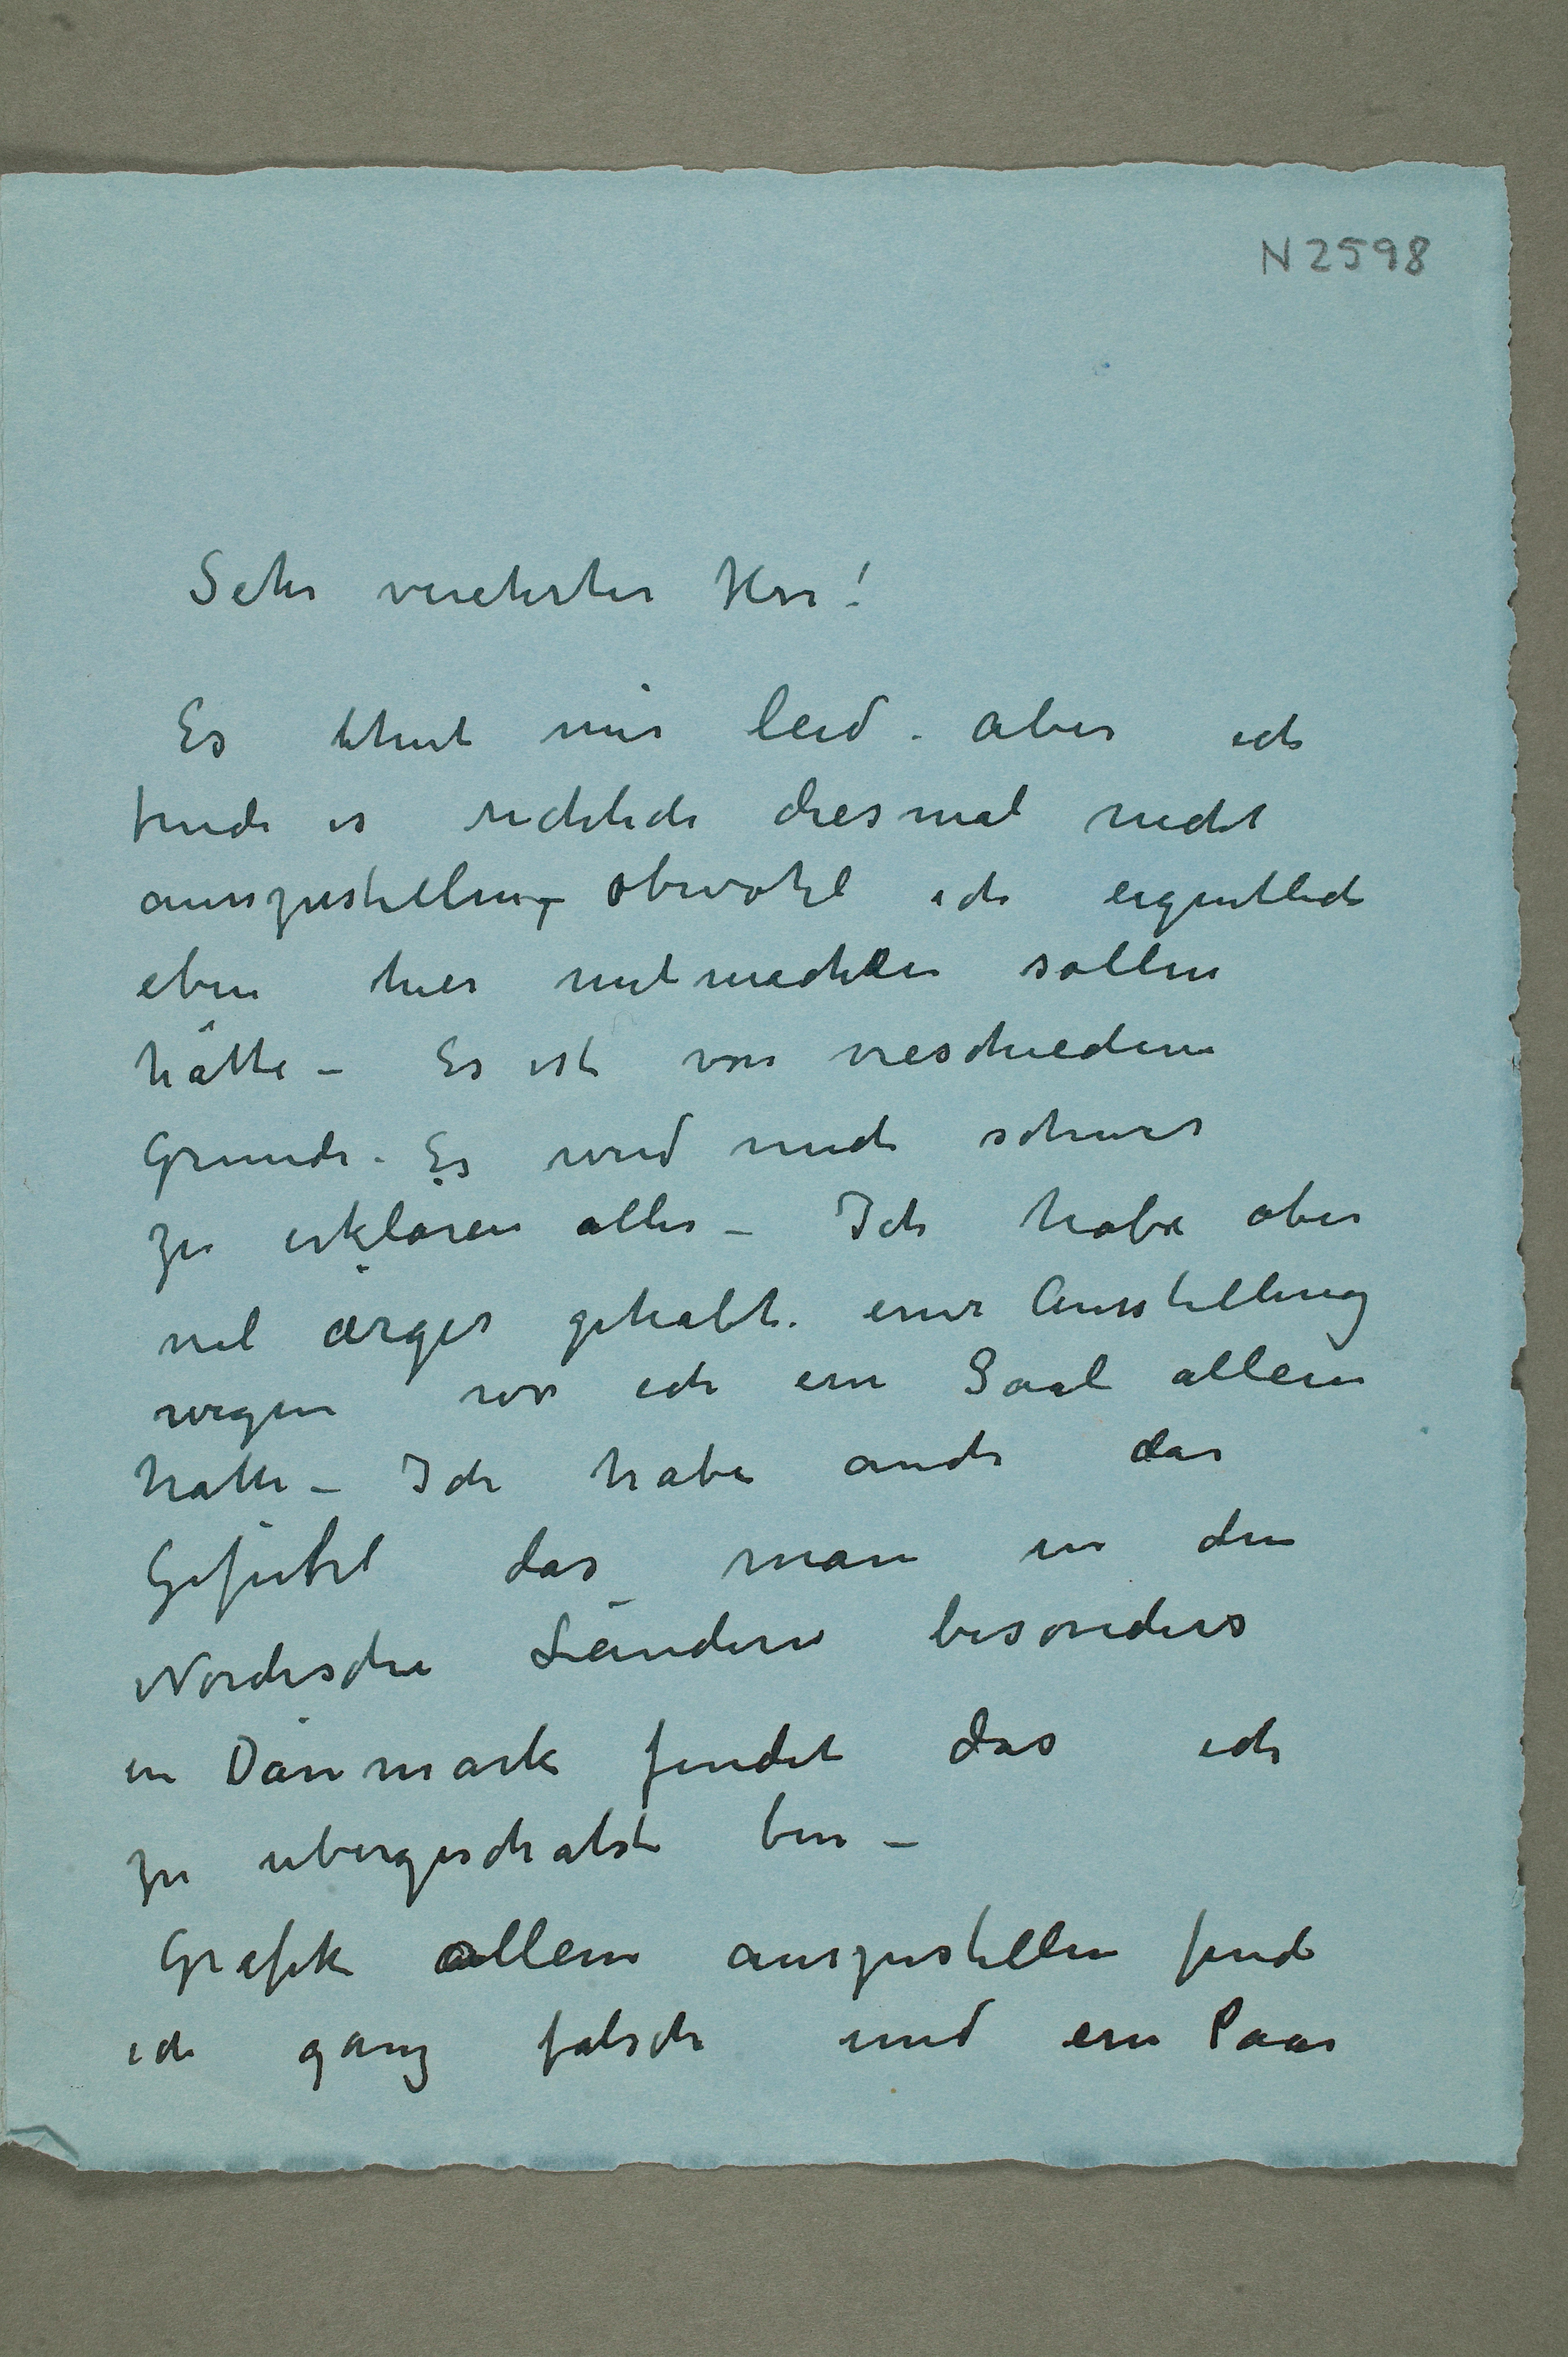 N 2598
Sehr verehrter Herr!
Es thut mir leid – aber ich
finde es richtich diesmal nicht
auszustellen, obwohl ich eigentlich
eben hier mitmachen sollen
hätte – Es ist von vieschiedene
Grunde – Es wird mich schwer
zu erklären alles – Ich habe aber
viel ärger gehabt. einer Ausstellung
wegen wo ich ein Saal allein
hatte – Ich habe auch das
Gefühl das man in den
Nordische Ländern besonders
in Dänmark findet das ich
zu ubergeschatst bin –
Grafik allein auszustellen find
ich ganz falsch und ein Paar